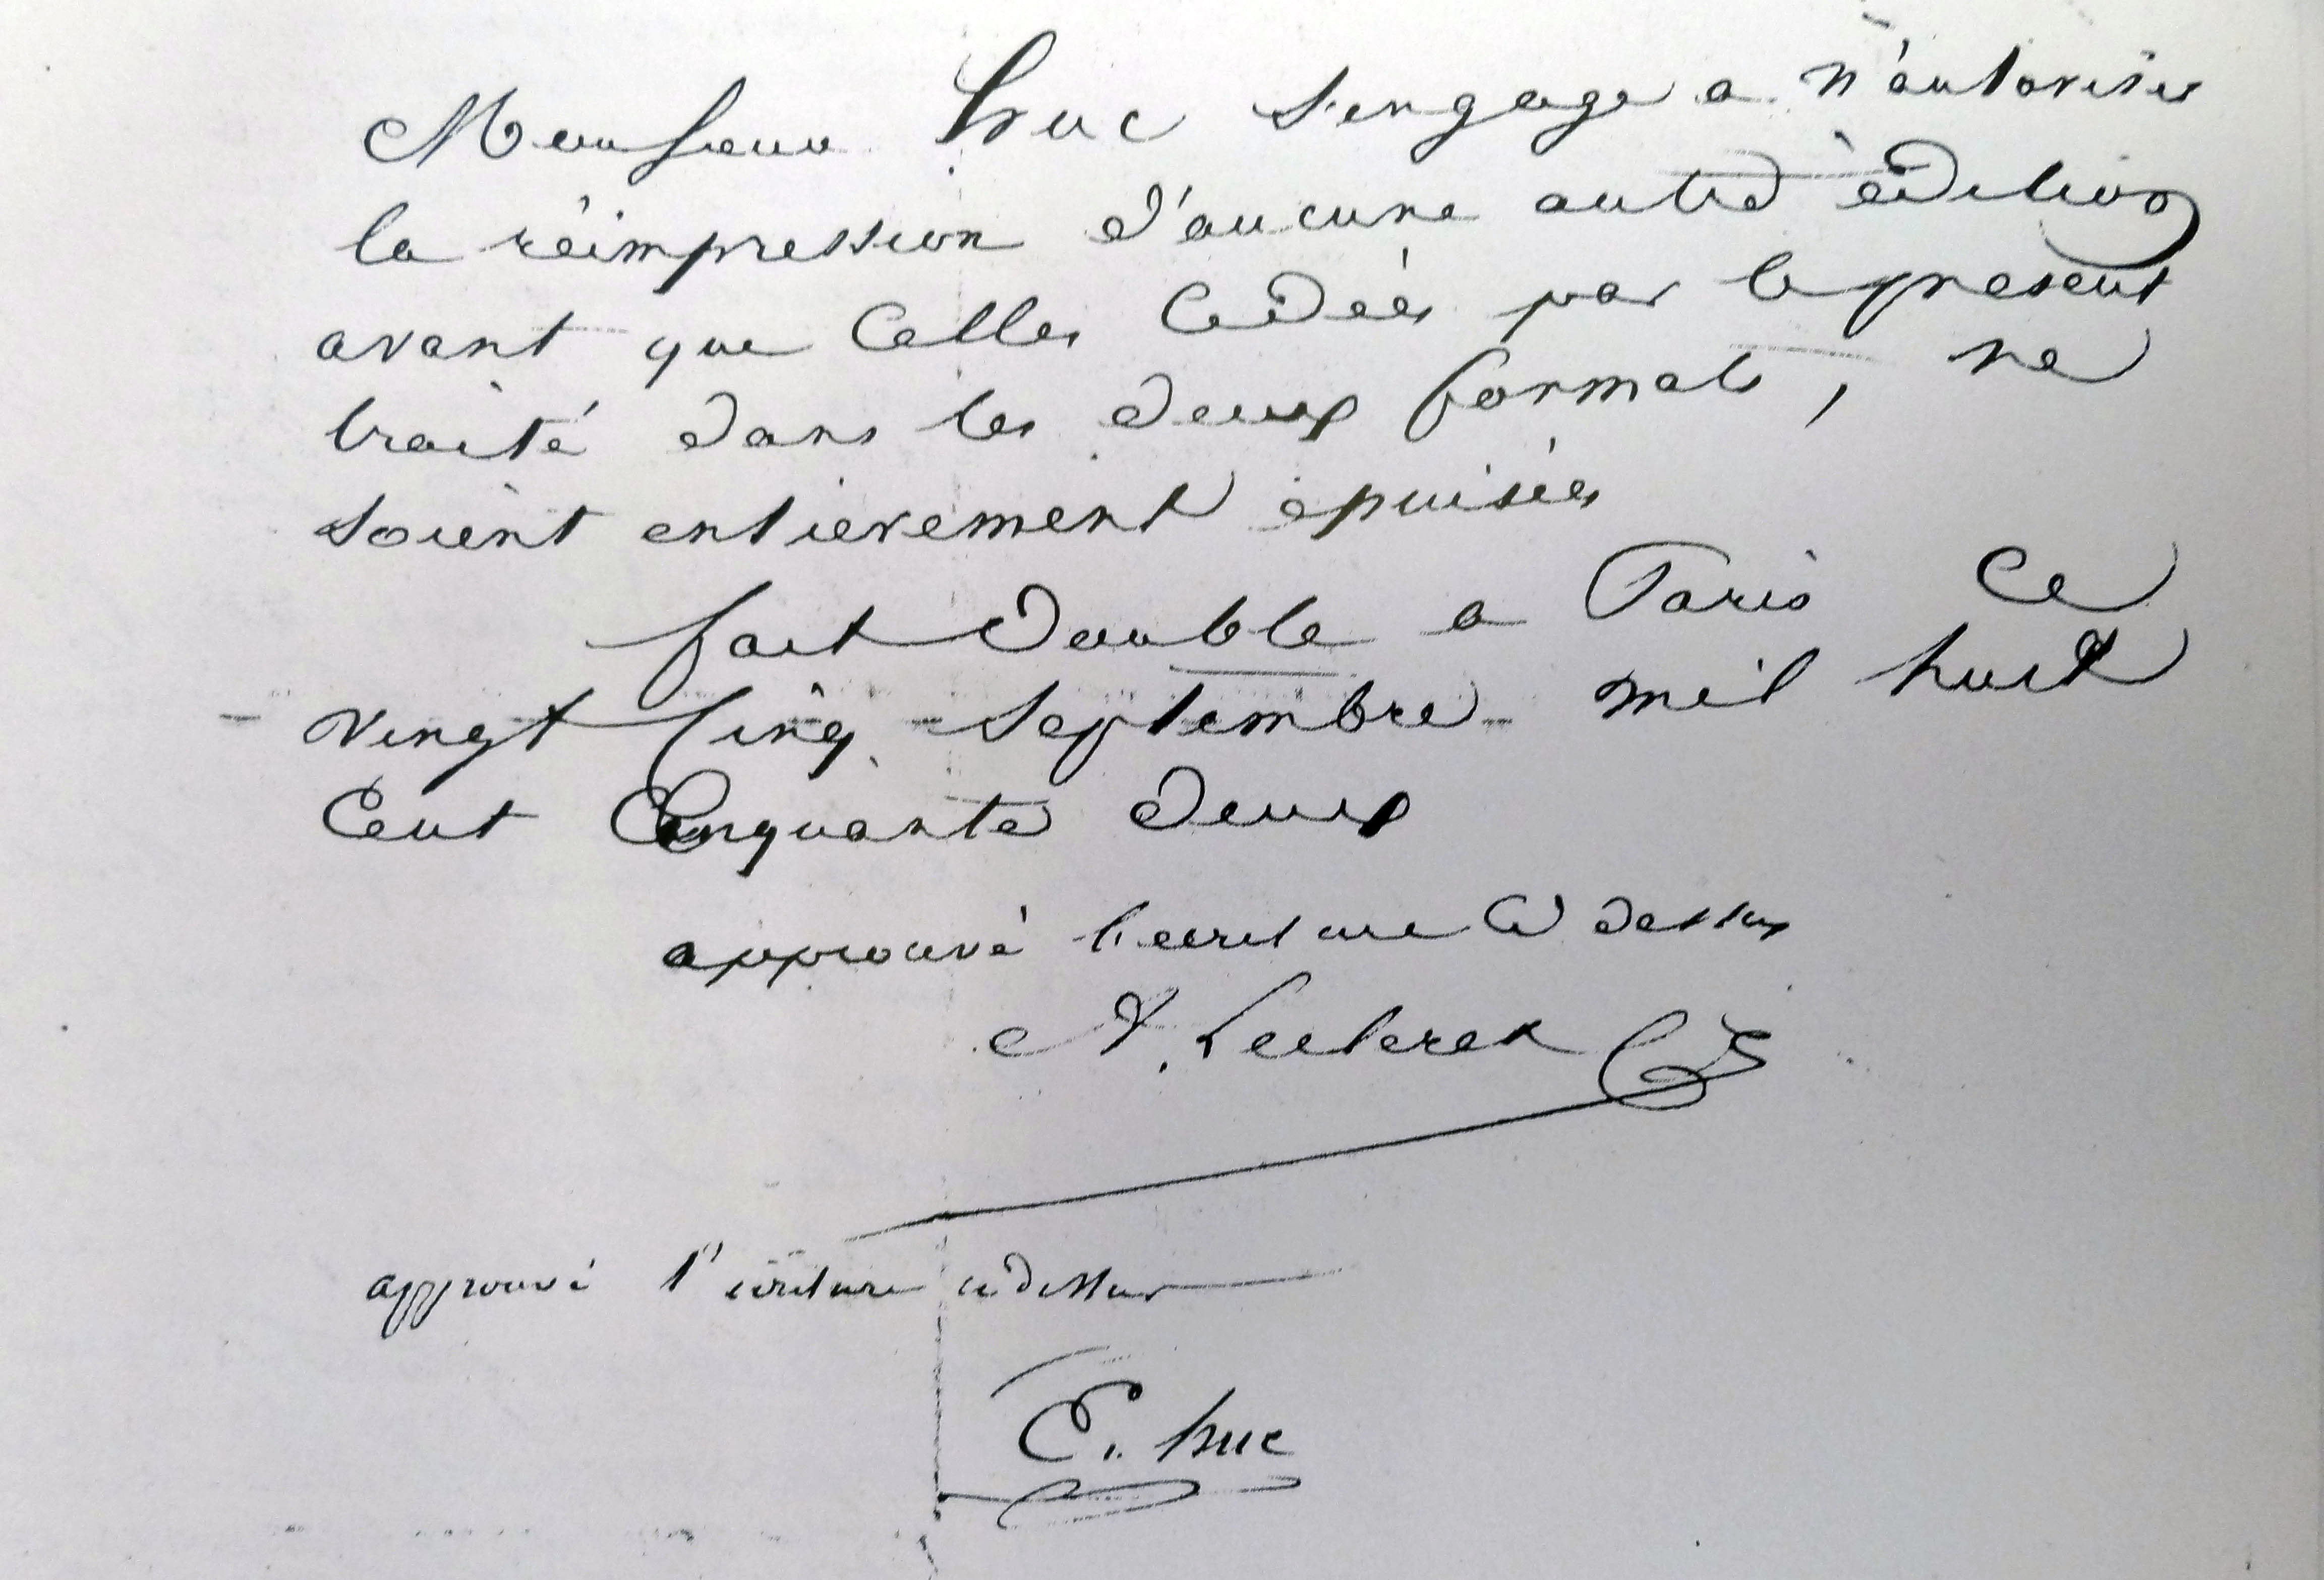 Monsieur huc s'engage a n'autoriser
la réimpression d'aucune autre édition
avant que Celles Cédées par le présent
traité dans les deux formats, ne
soient entièrement épuisées
fait double a Paris Ce
vingt Cinq Septembre mil huit
Cent Cinquante deux
approuvé l'ecriture Ci dessus
A. Leclerc
approuvé l'ecriture ci dessus
E. huc